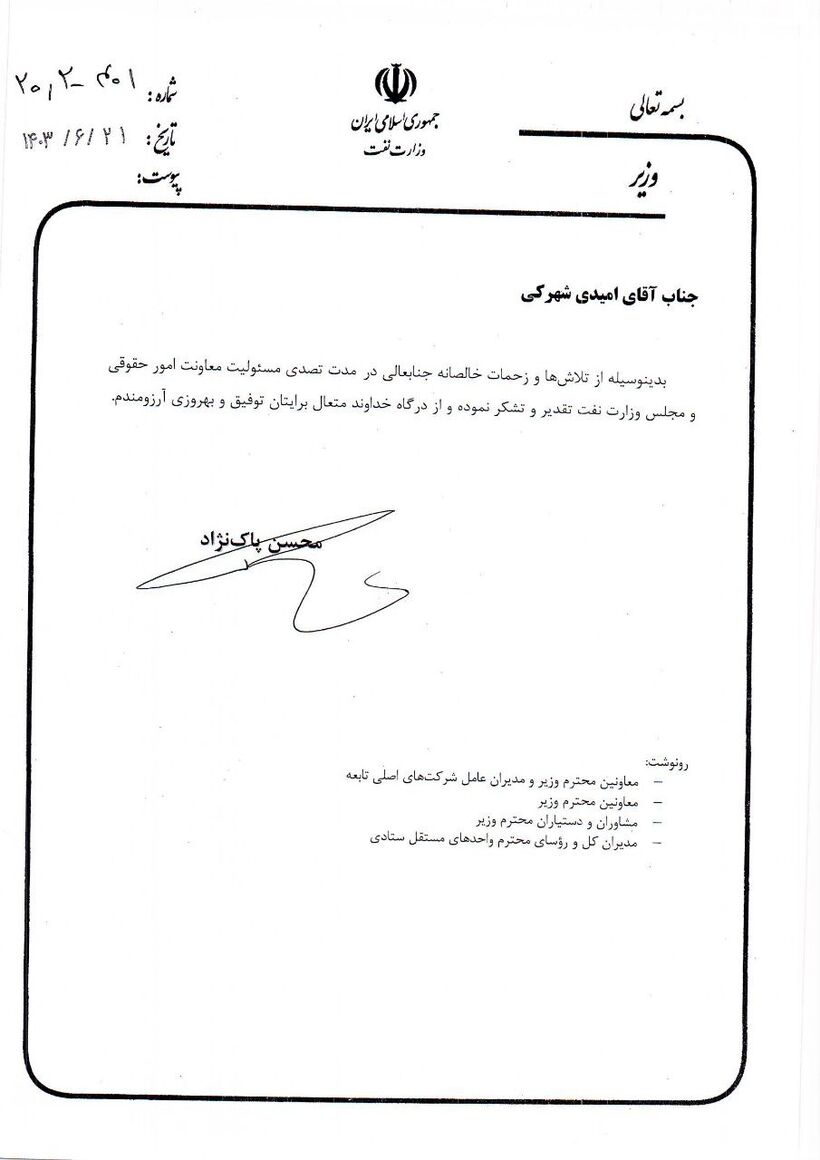 بسمه تعالی
جمهوری اسلامی ایران
وزارت نفت
وزیر
شماره:
تاریخ: ۱۴۰۳/۶/۲۱
پیوست:
جناب آقای امیدی شهرکی
بدینوسیله از تلاش‌ها و زحمات خالصانه جنابعالی در مدت تصدی مسئولیت معاونت امور حقوقی
و مجلس وزارت نفت تقدیر و تشکر نموده و از درگاه خداوند متعال برایتان توفیق و بهروزی آرزومندم.
محسن پاک‌نژاد
رونوشت:
– معاونین محترم وزیر و مدیران عامل شرکت‌های اصلی تابعه
– معاونین محترم وزیر
– مشاوران و دستیاران محترم وزیر
– مدیران کل و رؤسای محترم واحدهای مستقل ستادی